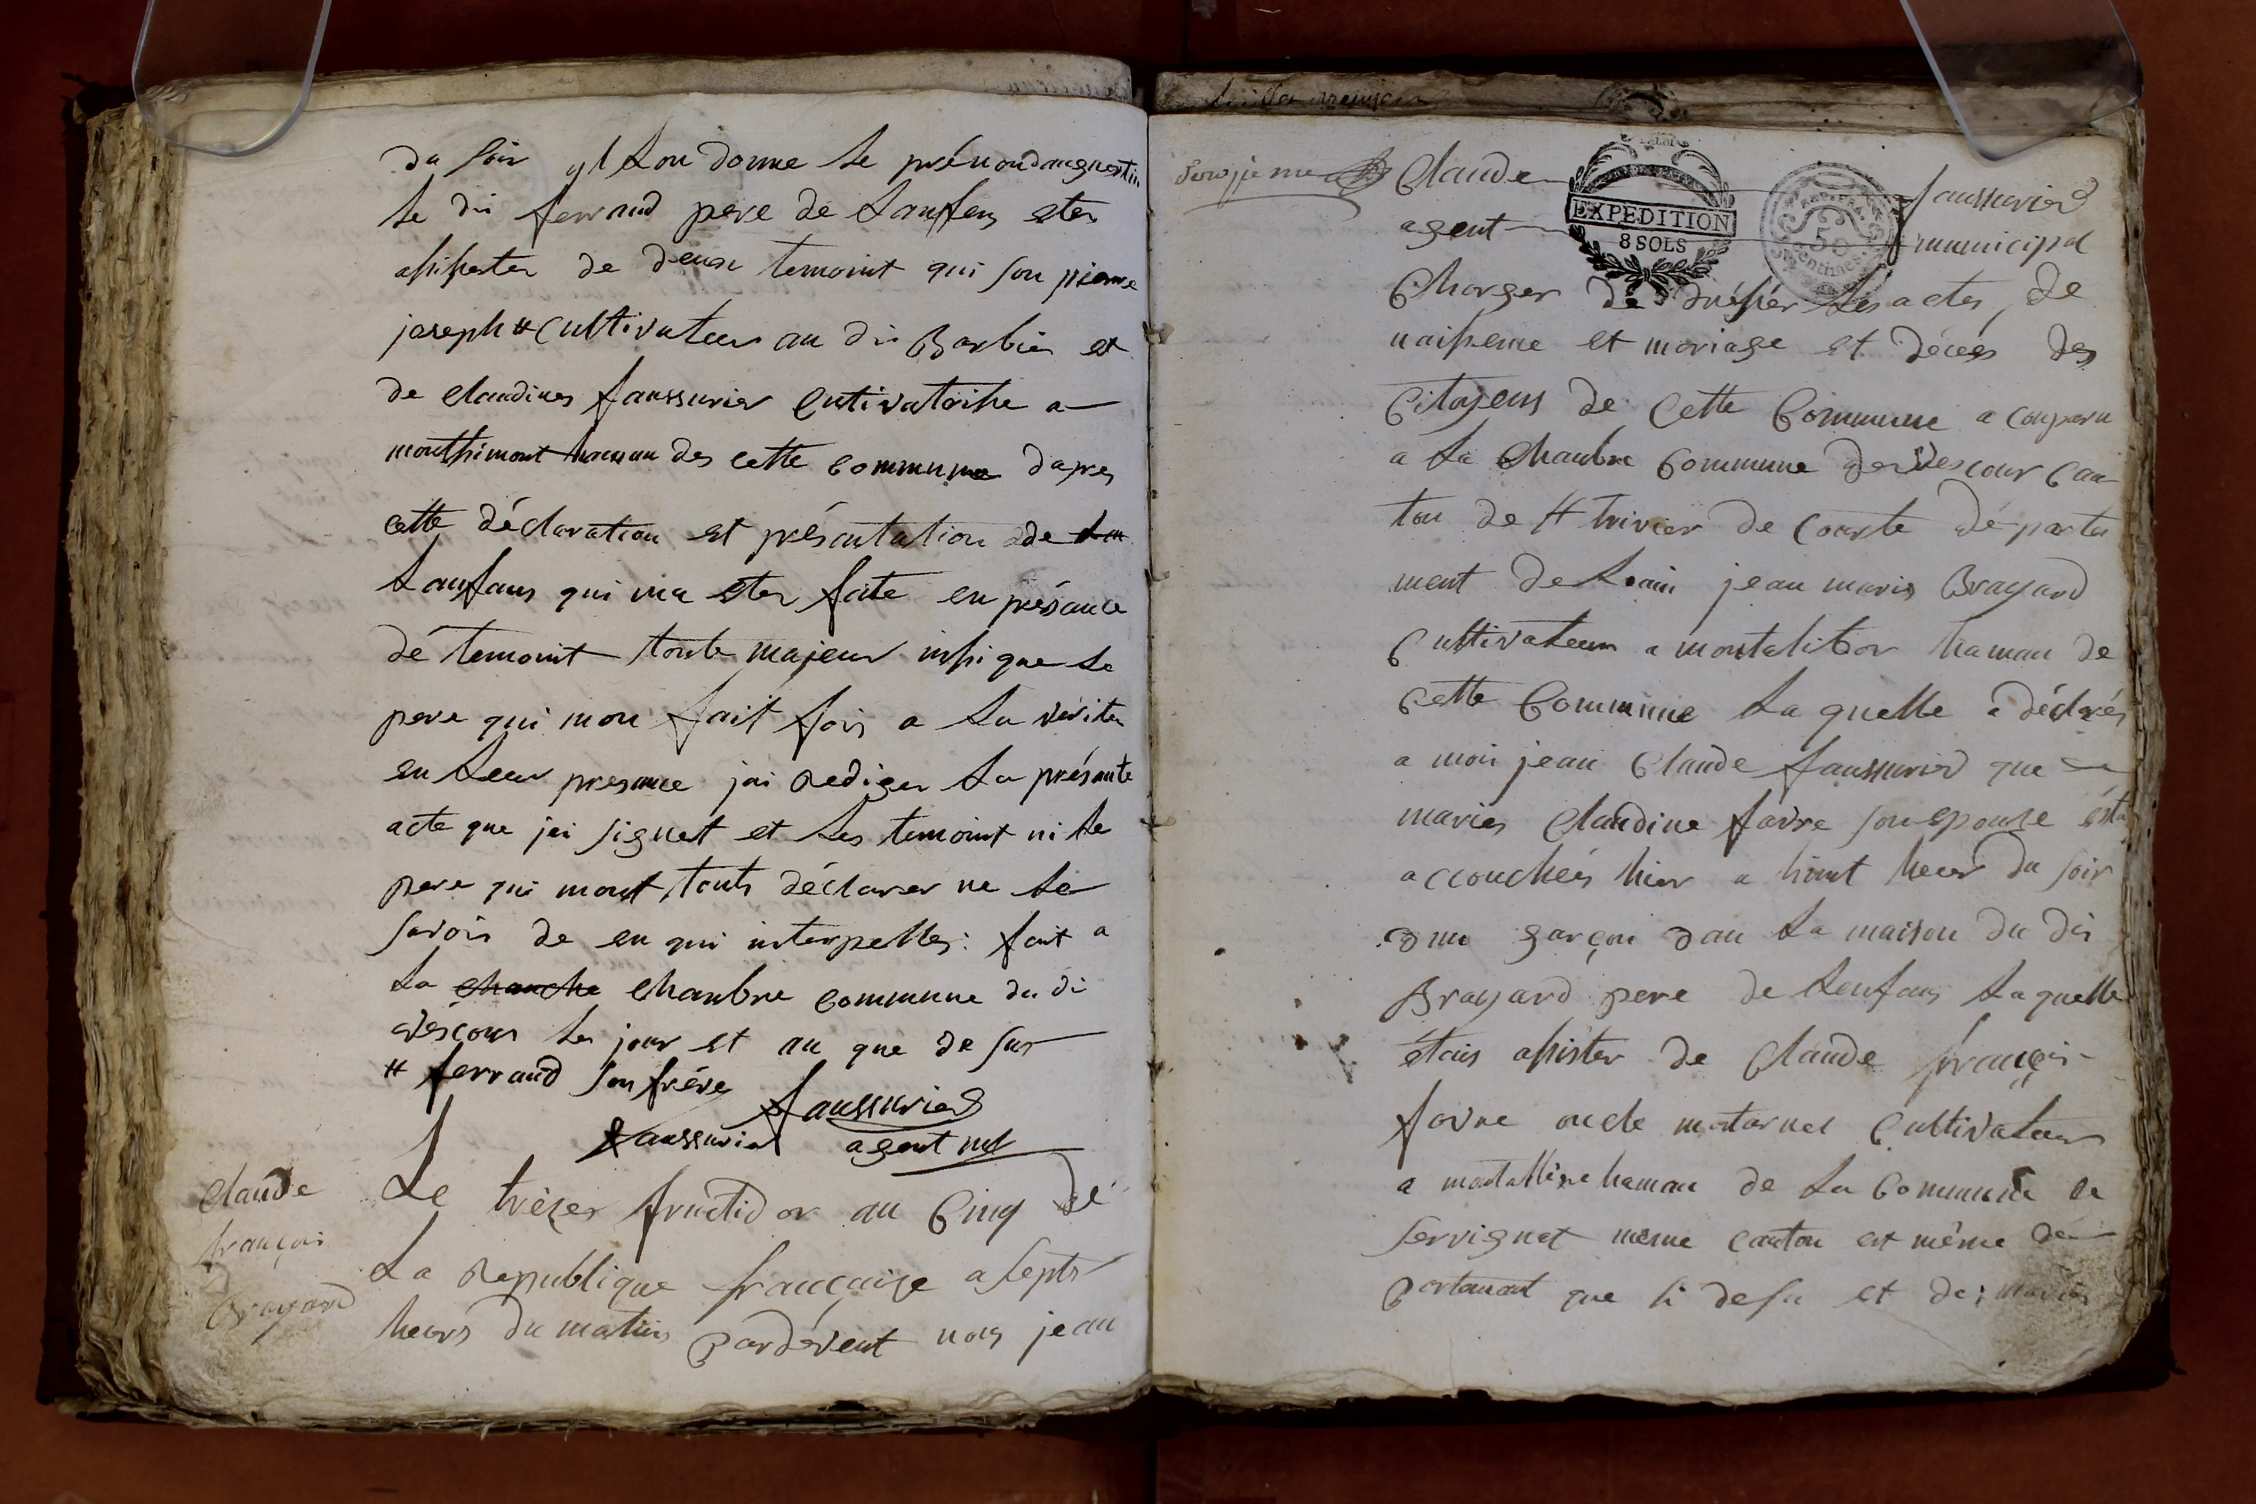 du soir yl Lon donne Le prénon daugustin
Le di ferrand pere de Lanfens etes
assister de deux temoint qui son pierre
joseph # Cultivateur au di Barbier et
de Claudines faussurier Cutivatrise a
monthimont hamau des cette commune dapres
cette déclaration et présentation de
Lanfans qui ma etes faite en présance
dé temoint toute majeur insi que Le
pere qui mon fait fois a La véritée
en Leur presance jai Rediger La présante
acte que jai signet et Les temoint ni Le
pere qui mont touts déclarer ne Le
savoir de en qui interpelles : fait a
La chanche chanbre commune du di
vescour Les jour et an que de sus
# ferrand son frére
faussurier
faussurier agent mel
Claude
françois
Brayard
Le trèzes fructidor an Cinq dé
La Republique françaize a septs
heurs du matins pardévent nous jean
Claude faussurier
EXPEDITION
8 SOLS
50
centimes
agent municipal
Charger de drésser Les actes de
naissense et mariage et décès des
Citoyens de Cette Commune a conparu
a La Chanbre Commune de Vescour Can
ton de St trivier de Courte départe
ment de Lain jean maris Brayard
Cultivateur a montalibor hamau de
Cette Commune La quelle a déclarés
a moi jean Claude faussurier que
maries Claudine favre son epouse éste
accouchéés hier a huit heur du soir
dun garçon dan La maison du di
Brayard pere de Lenfans La quelle
étais assister de Claude françois
favre oncle maternel Cultivateur
a hamau de La Commune de
servignat même canton et même dé
partemant que si desu et de maries